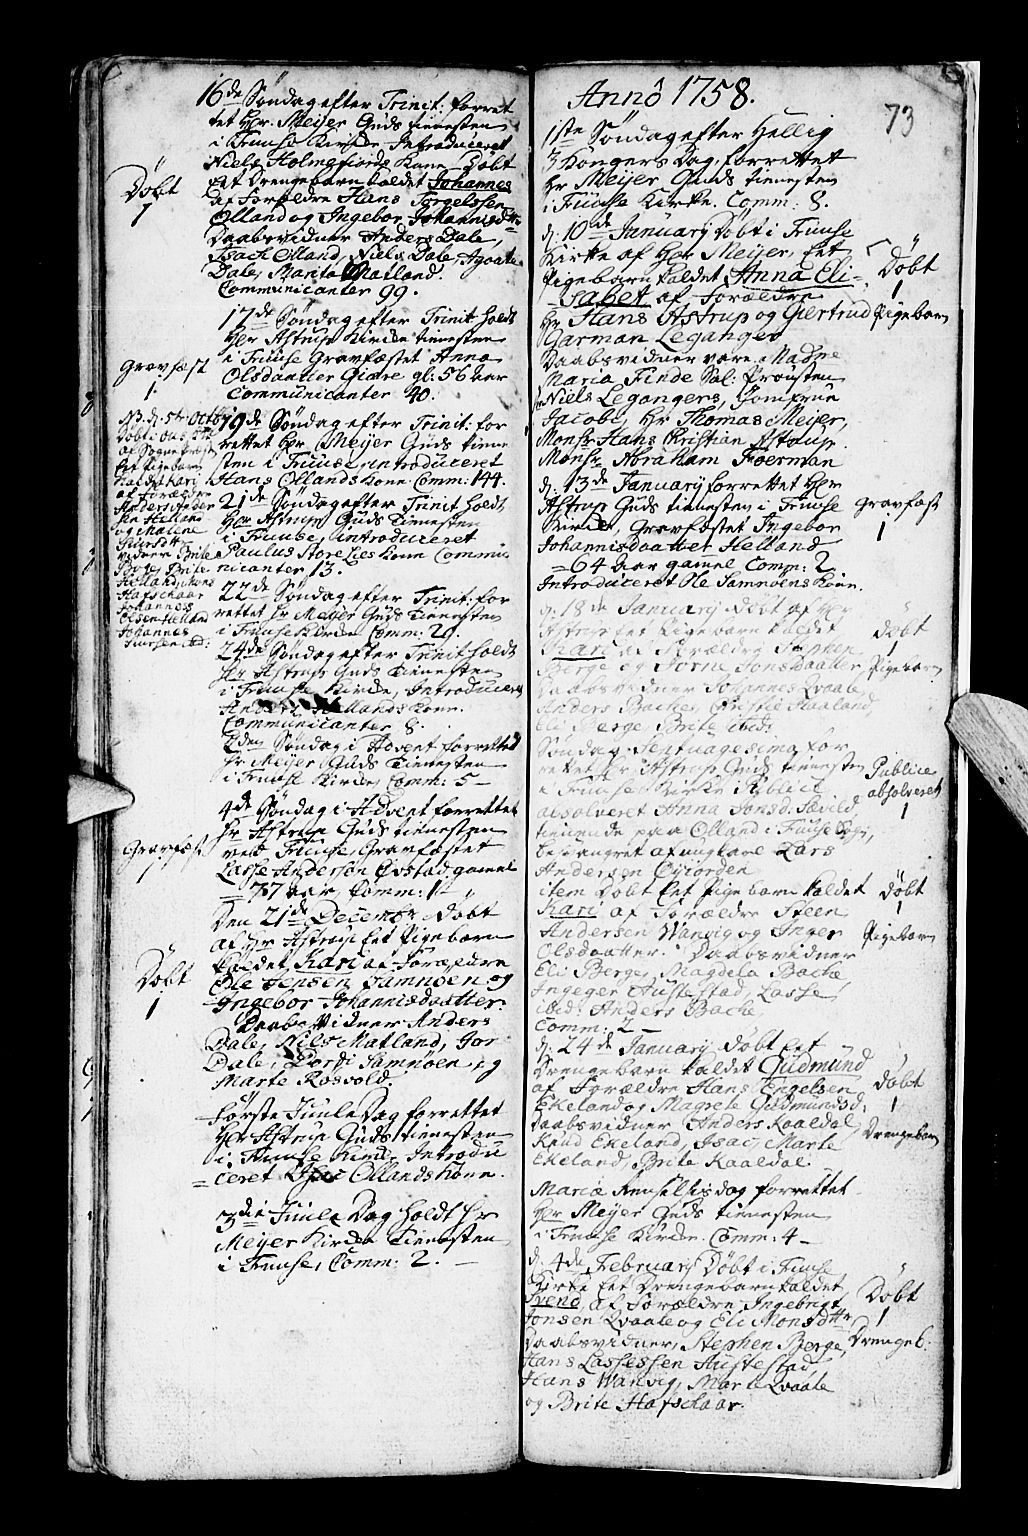 16de Søndag efter Trinit: forret
tet Hr. Meijer Guds tienesten
i Fuuse Kirke Introduceret
Niels Holmefiords Kone Døbt
Eet Drengebarn kaldet Johannes
af Forældre Hans Torgelssen
Olland og Ingebor Johannisdttr
Daabsvidner Anders Dale,
Isach Olland, Niels Dale, Agaate
Dale, Marita Matland.
Communicanter 99.
Døbt
1
17de Søndag efter Trinit holdt
Hr Astrup Kirke tienesten
i Fuuse Gravfæstet Anna
Olsdaatter Giære gl: 56 aar
Communicanter 40.
Gravfæst
1.
19de Søndag efter Trinit: for
rettet Hr Meijer Guds tiene
sten i Fuuse, introduceret
Hans Ollands Kone Comm: 144.
NB d. 5te Octobr
Døbt i
af Sognepræst
Eet Pigebarn
kaldet Kari
af Forældre
Anders Ander
sen Helland
og Malene
vidner Brite
Berge, Brite
Helland, Mons
Hafschaar
Johannes
Olsen Helland
Johannes
ibd:
21de Søndag efter Trinit holdt
Hr Astrup Guds Tienesten
i Fuuse, introduceret
Paulus Store Lies Kone Commu
nicanter 13.
22de Søndag efter Trinit: for
rettet Hr Meijer Guds Tienesten
i Fuuse Kirke Comm: 20.
24de Søndag efter Trinit holdt
Hr Astrup Guds Tienesten
i Fuuse Kirke, Introduceret
Hellands Kone.
Communicanter 8.
2den Søndag i Advent forrettet
Hr Meijer Guds Tienesten
i Fuuse Kirke, Comm: 5 —
4de Søndag i Advent forrettet
Hr Astrup Guds tienesten
ved Fuuse, Gravfæstet
Lasse Andersøn Øvstad, gammel
77 aar, Comm: 1
Gravfæst
1
Den 21de Decembr Døbt
af Hr Astrup Eet Pigebarn
kaldet Kari af Forældre
Ole Jensen Samnøen og
Ingebor Johannisdaatter.
Daabs Vidner Anders
Dale, Niels Matland, Jor
Dale, Dordi Samnøen og
Marte Rosvold.
Døbt
1
Første Juule Dag forrettet
Hr Astrup Guds tienesten
i Fuuse Kirke, Introdu
ceret Ollands Kone.
3die Juule Dag holdt Hr
Meijer Kirke Tienesten
i Fuuse, Comm: 2. —
Annô 1758.
73
1ste Søndag efter Hellig
3 Kongers Dag forrettet
Hr Meijer Guds tienesten
i Fuuse Kirke. Comm: 8.
d: 10de Januarij Døbt i Fuuse
Kirke af Hr Meijer, Eet
Pigebarn kaldet Anna Eli-
sabet af Forældre
Hr Hans Astrup og Giertrud
Garman Leganger
Daabsvidner vare Madme
Maria Finde Sal: Prousten
Niels Legangers, Jomfrue
Jacobi, Hr Thomas Meijer,
Monsr Hans Kristian Astrup
Monsr Abraham Foerman
Døbt
1
Pigebarn
d: 13de Januarij forrettet Hr
Astrup Guds tienesten i Fuuse
Kirke, Gravfæstet Ingebor
Johannisdaatter Helland
64 aar gammel Comm: 2
Introduceret Ole Samnøens Kone.
Gravfæst
1
d: 18de Januarij Døbt af Hr
Astrup Eet Pigebarn kaldet
Kari af Forældre Stephen
Berge og Jorne Jonsdaatter
Daabsvidner Johannes Qvaale,
Anders Backe, Christie Haaland,
Eli Berge, Brite ibid:
Døbt
1
Pigebarn
Søndag Septuagesima for
rettet Hr Astrup Guds tienesten
i Fuuse Kirke Publicè
absolveret Anna Jonsd: Skeild
tienende paa Olland i Fuuse Sogn,
besvangret af ungkarl Lars
Andersen Øyjorden
Publice
absolveret
1
item Døbt Eet Pigebarn kaldet
Kari af Forældre Steen
Andersen Wanvig og Inger
Olsdaatter. Daabsvidner
Eli Berge, Magdela Backe
Ingeger Austestad, Lasse
ibid: Anders Backe
Comm: 2 —
Døbt
1
Pigebarn
d: 24de Januarij Døbt Eet
Drengebarn kaldet Gudmund
af Forældre Hans Engelsen
Ekeland og Magrete Gudmundsd:
Daabsvidner Anders Kaaldal,
Knud Ekeland, Isac, Marte
Ekeland, Brite Kaaldal.
Døbt
1
Drengebarn
Mariæ Renselsis dag forrettet
Hr Meijer Guds tienesten
i Fuuse Kirke. Comm: 4 —
d: 4de Februarij Døbt i Fuuse
Kirke Eet Drengebarn kaldet
Svend, af Forældre Ingebrigt
Jonsen Qvaale og Eli Monsdttr
Daabsvidner, Stephen Berge,
Hans Lassessen Austestad
Hans Wanvig, Marte Qvaale
og Brite Hafschaar.
Døbt
1
Drengeb: